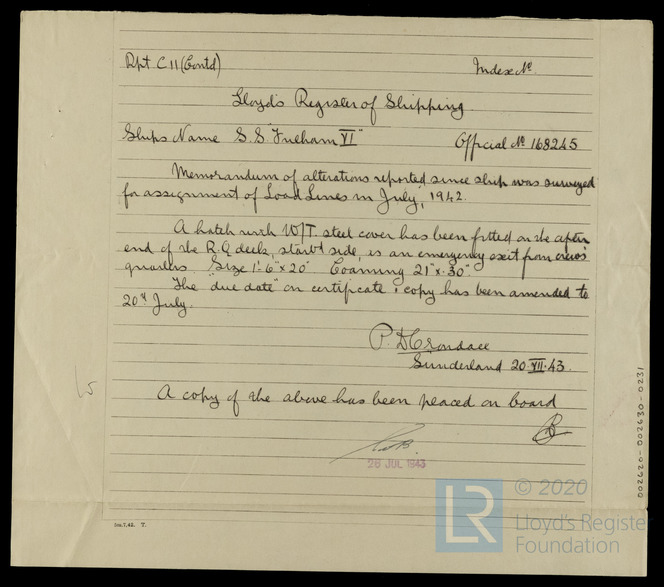 Rpt C 11 (Contd)
Index No
Lloyd's Register of Shipping
Ships Name S.S. "Fulham VI"
Official No 168245
Memorandum of alterations reported since ship was surveyed
for assignment of Load Lines in July, 1942.
A hatch with W/T. steel cover has been fitted on the after
end of the R.Q deck, starbd side, is an emergency exit from crew's
quarters. Size 1'-6" x 20". Coaming 21" x 30"
The "due date" on certificate & copy has been amended to
20th July.
Sunderland 20.VII.43.
A copy of the above has been placed on board
26 JUL 1943
002620-002630-0231
LR
© 2020
Lloyd's Register
Foundation
5m.7,42. T.